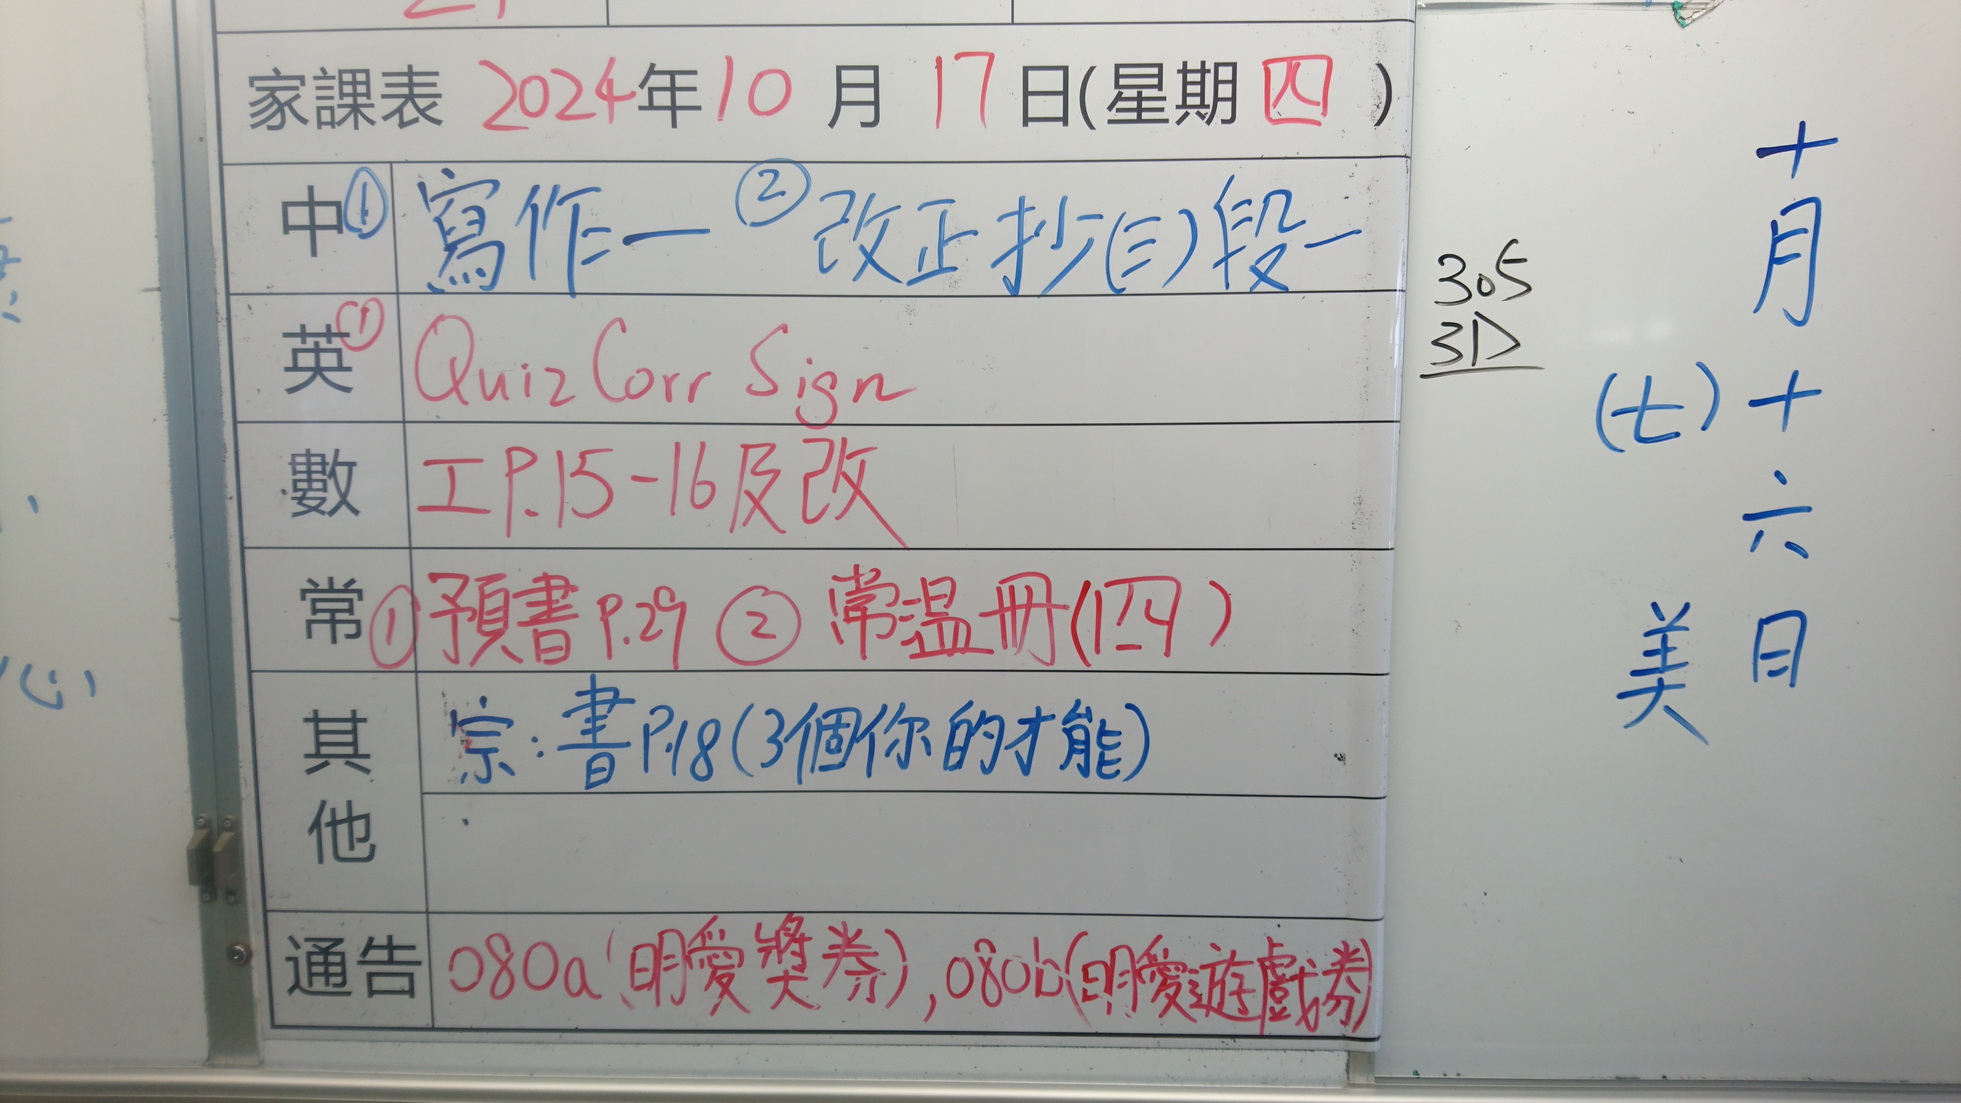 家課表 2024年10月17日(星期四)
中 ① 寫作一 ② 改正抄(三)段一
英 ① Quiz Corr Sign
數 工P.15-16及改
常 ① 預書P.29 ② 常溫冊(四)
其他 宗:書P.18(3個你的才能)
通告 080a(明愛獎券),080b(明愛遊戲券)
305
3D
十月十六日
(七) 美